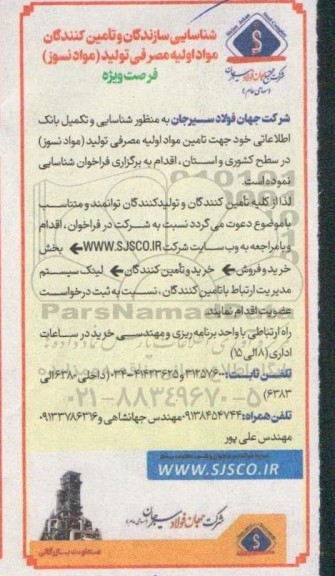 شناسایی سازندگان و تامین کنندگان
مواد اولیه مصرفی تولید (مواد نسوز)
فرصت ویژه
شرکت جهان فولاد سیرجان
(سهامی عام)
شرکت جهان فولاد سیرجان به منظور شناسایی و تکمیل بانک
اطلاعاتی خود جهت تامین مواد اولیه مصرفی تولید (مواد نسوز)
در سطح کشوری و استان، اقدام به برگزاری فراخوان شناسایی
نموده است.
لذا از کلیه تأمین کنندگان و تولیدکنندگان توانمند و متناسب
با موضوع دعوت می گردد نسبت به شرکت در فراخوان، اقدام
و با مراجعه به وب سایت شرکت WWW.SJSCO.IR ← بخش
خرید و فروش ← خرید و تأمین کنندگان ← لینک سیستم
مدیریت ارتباط با تامین کنندگان، نسبت به ثبت درخواست
عضویت اقدام نمایند.
راه ارتباطی با واحد برنامه ریزی و مهندسی خرید در ساعات
اداری (۸ الی ۱۵)
تلفن ثابت: ۳۱۲۵۷۶۰۰ و ۴۱۴۲۳۶۲۵-۰۳۴ (داخلی ۶۳۸۰ الی
۶۳۸۳)
تلفن همراه: ۰۹۱۳۸۴۵۴۷۴۴ مهندس جهانشاهی و ۰۹۱۳۳۷۸۶۳۱۶
مهندس علی پور
WWW.SJSCO.IR
شرکت جهان فولاد سیرجان
(سهامی عام)
معاونت بازرگانی
ParsNamadData
۰۲۱-۸۸۳۴۹۶۷۰-۵